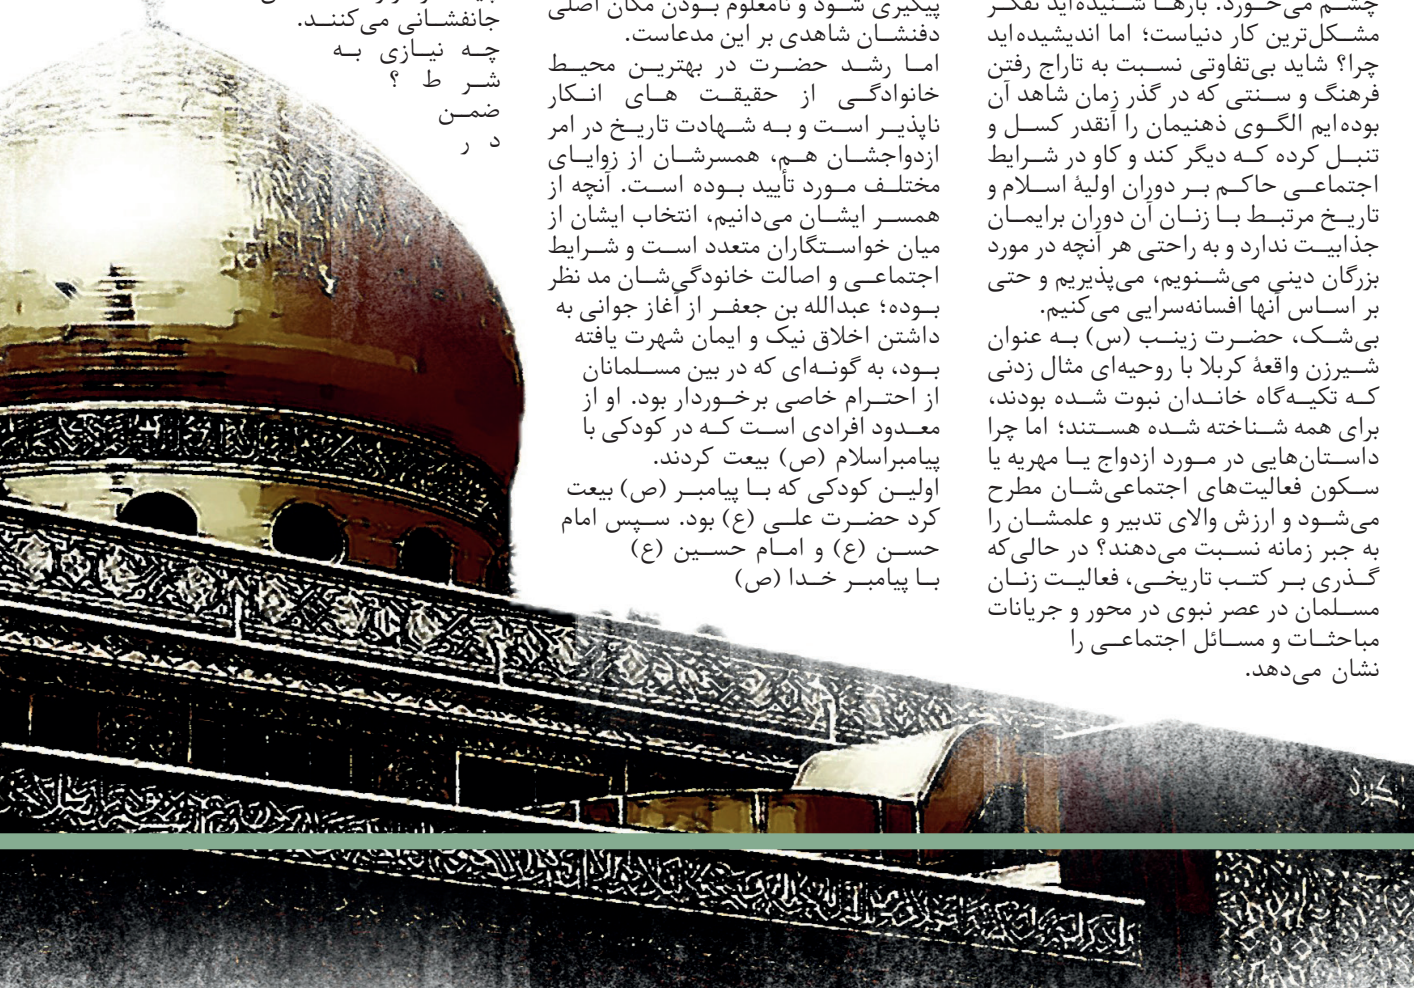 چشم می‌خورد. بارها شنیده‌اید تفکر
مشکل‌ترین کار دنیاست؛ اما اندیشیده‌اید
چرا؟ شاید بی‌تفاوتی نسبت به تاراج رفتن
فرهنگ و سنتی که در گذر زمان شاهد آن
بوده‌ایم الگوی ذهنیمان را آنقدر کسل و
تنبل کرده که دیگر کند و کاو در شرایط
اجتماعی حاکم بر دوران اولیهٔ اسلام و
تاریخ مرتبط با زنان آن دوران برایمان
جذابیت ندارد و به راحتی هر آنچه در مورد
بزرگان دینی می‌شنویم، می‌پذیریم و حتی
بر اساس آنها افسانه‌سرایی می‌کنیم.
بی‌شک، حضرت زینب (س) به عنوان
شیرزن واقعهٔ کربلا با روحیه‌ای مثال زدنی
که تکیه‌گاه خاندان نبوت شده بودند،
برای همه شناخته شده هستند؛ اما چرا
داستان‌هایی در مورد ازدواج یا مهریه یا
سکون فعالیت‌های اجتماعی‌شان مطرح
می‌شود و ارزش والای تدبیر و علمشان را
به جبر زمانه نسبت می‌دهند؟ در حالی‌که
گذری بر کتب تاریخی، فعالیت زنان
مسلمان در عصر نبوی در محور و جریانات
مباحثات و مسائل اجتماعی را
نشان می‌دهد.
پیگیری شود و نامعلوم بودن مکان اصلی
دفنشان شاهدی بر این مدعاست.
اما رشد حضرت در بهترین محیط
خانوادگی از حقیقت های انکار
ناپذیر است و به شهادت تاریخ در امر
ازدواجشان هم، همسرشان از زوایای
مختلف مورد تأیید بوده است. آنچه از
همسر ایشان می‌دانیم، انتخاب ایشان از
میان خواستگاران متعدد است و شرایط
اجتماعی و اصالت خانودگی‌شان مد نظر
بوده؛ عبدالله بن جعفر از آغاز جوانی به
داشتن اخلاق نیک و ایمان شهرت یافته
بود، به گونه‌ای که در بین مسلمانان
از احترام خاصی برخوردار بود. او از
معدود افرادی است که در کودکی با
پیامبراسلام (ص) بیعت کردند.
اولین کودکی که با پیامبر (ص) بیعت
کرد حضرت علی (ع) بود. سپس امام
حسن (ع) و امام حسین (ع)
با پیامبر خدا (ص)
جانفشانی می‌کنند.
چه نیازی به
شر ط ؟
ضمن
د ر